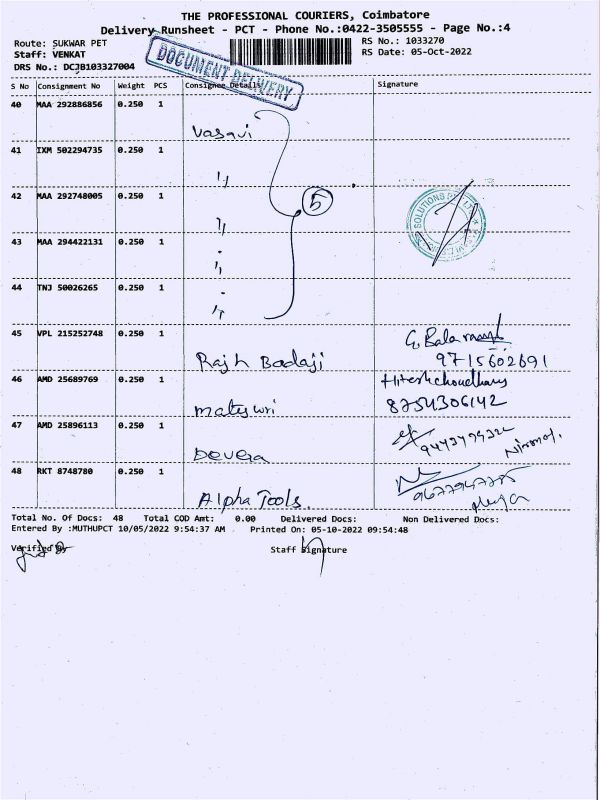 THE PROFESSIONAL COURIERS, Coimbatore
Delivery Runsheet - PCT - Phone No.:0422-3505555 - Page No.:4
Route: SUKWAR PET
RS No.: 1033270
Staff: VENKAT
RS Date: 05-Oct-2022
DRS No.: DCJB103327004
DOCUMENT DELIVERY
S No Consignment No Weight PCS Consignee Details Signature
40 MAA 292886856 0.250 1
Vasavi
41 IXM 502294735 0.250 1
42 MAA 292748005 0.250 1
5
SOLUTIONS
43 MAA 294422131 0.250 1
44 TNJ 50026265 0.250 1
45 VPL 215252748 0.250 1
Rajh Badaji
9715602691
46 AMD 25689769 0.250 1
Hitesh choudhary
8754306142
47 AMD 25896113 0.250 1
Devera
Nirmal.
48 RKT 8748780 0.250 1
Alpha Tools.
Total No. Of Docs: 48 Total COD Amt: 0.00 Delivered Docs: Non Delivered Docs:
Entered By :MUTHUPCT 10/05/2022 9:54:37 AM Printed On: 05-10-2022 09:54:48
Verified By Staff Signature